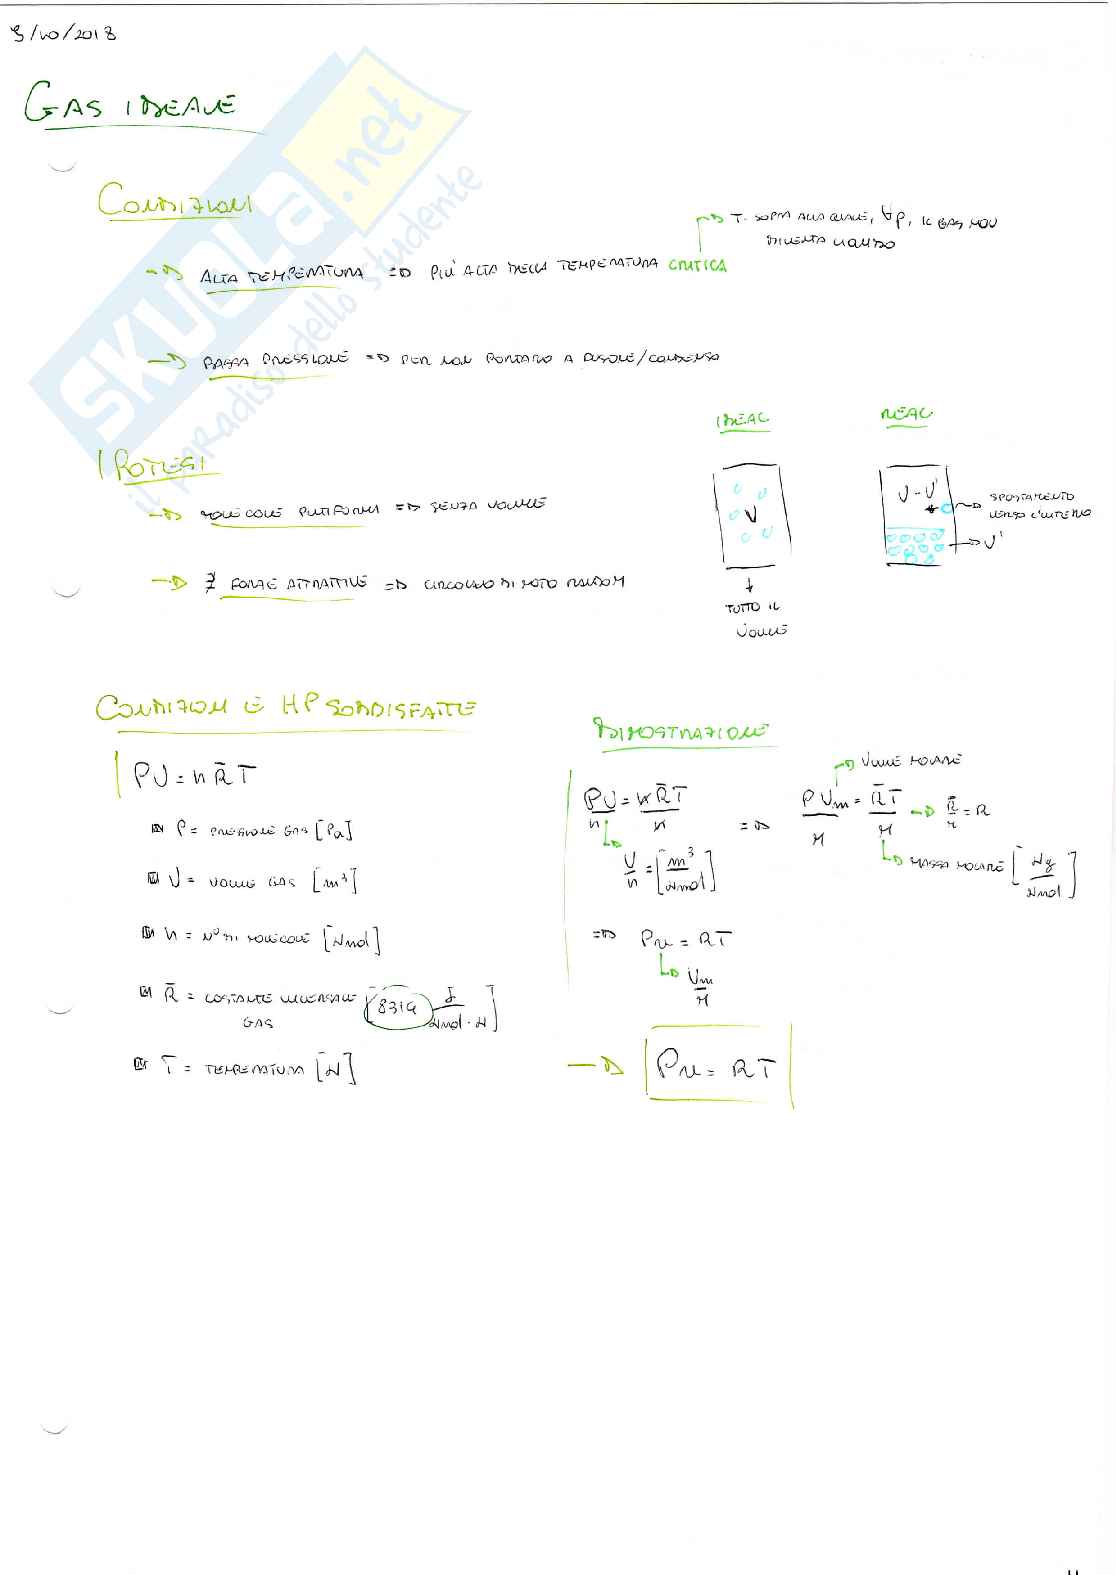 3/10/2018
GAS IDEALE
CONDIZIONI
T. SOPRA ALLA QUALE, ∀p, IL GAS NON
DIVENTA LIQUIDO
ALTA TEMPERATURA => PIU' ALTA DELLA TEMPERATURA CRITICA
BASSA PRESSIONE => PER NON PORTARLO A /CONDENSO
IDEAL
REAL
IPOTESI
MOLECOLE PUNTIFORMI => SENZA VOLUME
V
V-V'
SPOSTAMENTO
VERSO L'INTERNO
V'
∄ FORZE ATTRATTIVE => CIRCOLANO DI MOTO RANDOM
TUTTO IL
VOLUME
CONDIZIONI E HP SODDISFATTE
DIMOSTRAZIONE
PV = n R̄ T
P = PRESSIONE GAS [Pa]
V = VOLUME GAS [m³]
n = N° DI MOLECOLE [kmol]
R̄ = COSTANTE UNIVERSALE GAS [8314 J/kmol·K]
T = TEMPERATURA [K]
PV/n = nR̄T/n => PVm/M = R̄T/M -> R̄/M = R
VOLUME MOLARE
V/n = [m³/kmol]
MASSA MOLARE [kg/kmol]
=> Pv = RT
Vm/M
Pv = RT
SKUOLA.net
il paradiso dello studente